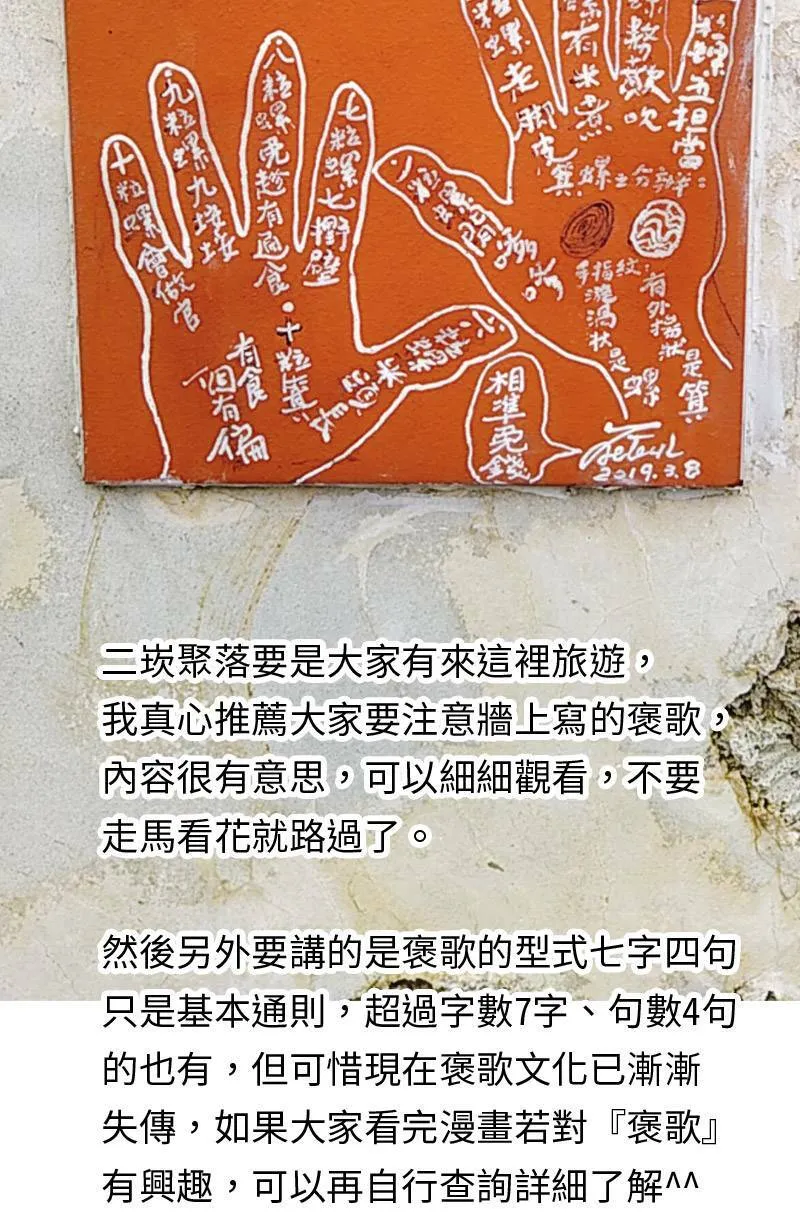 粒螺老脚皮
有米煮
螺五担當
箕螺之分辦：
手指紋：
漩渦狀是螺
有外揚狀是箕
一粒螺
七粒螺七擳壁
八粒螺
有通食
九粒螺九
十粒螺會做官
十粒箕
有食
個有偏
相準免錢
2019.3.8
二崁聚落要是大家有來這裡旅遊，
我真心推薦大家要注意牆上寫的褒歌，
內容很有意思，可以細細觀看，不要
走馬看花就路過了。
然後另外要講的是褒歌的型式七字四句
只是基本通則，超過字數7字、句數4句
的也有，但可惜現在褒歌文化已漸漸
失傳，如果大家看完漫畫若對『褒歌』
有興趣，可以再自行查詢詳細了解^^